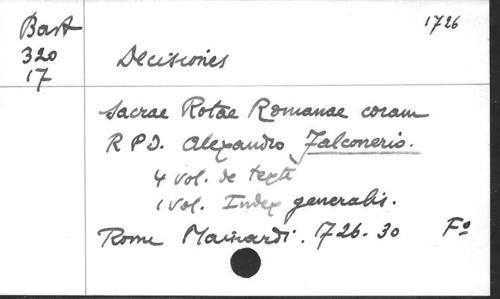 Bart 1726
320 Decisiones
17
Sacrae Rotae Romanae coram
R P D. Alexandro Falconerio.
4 vol. de texte
1 vol. Index generalis.
Rome Mainardi. 726-30 Fº